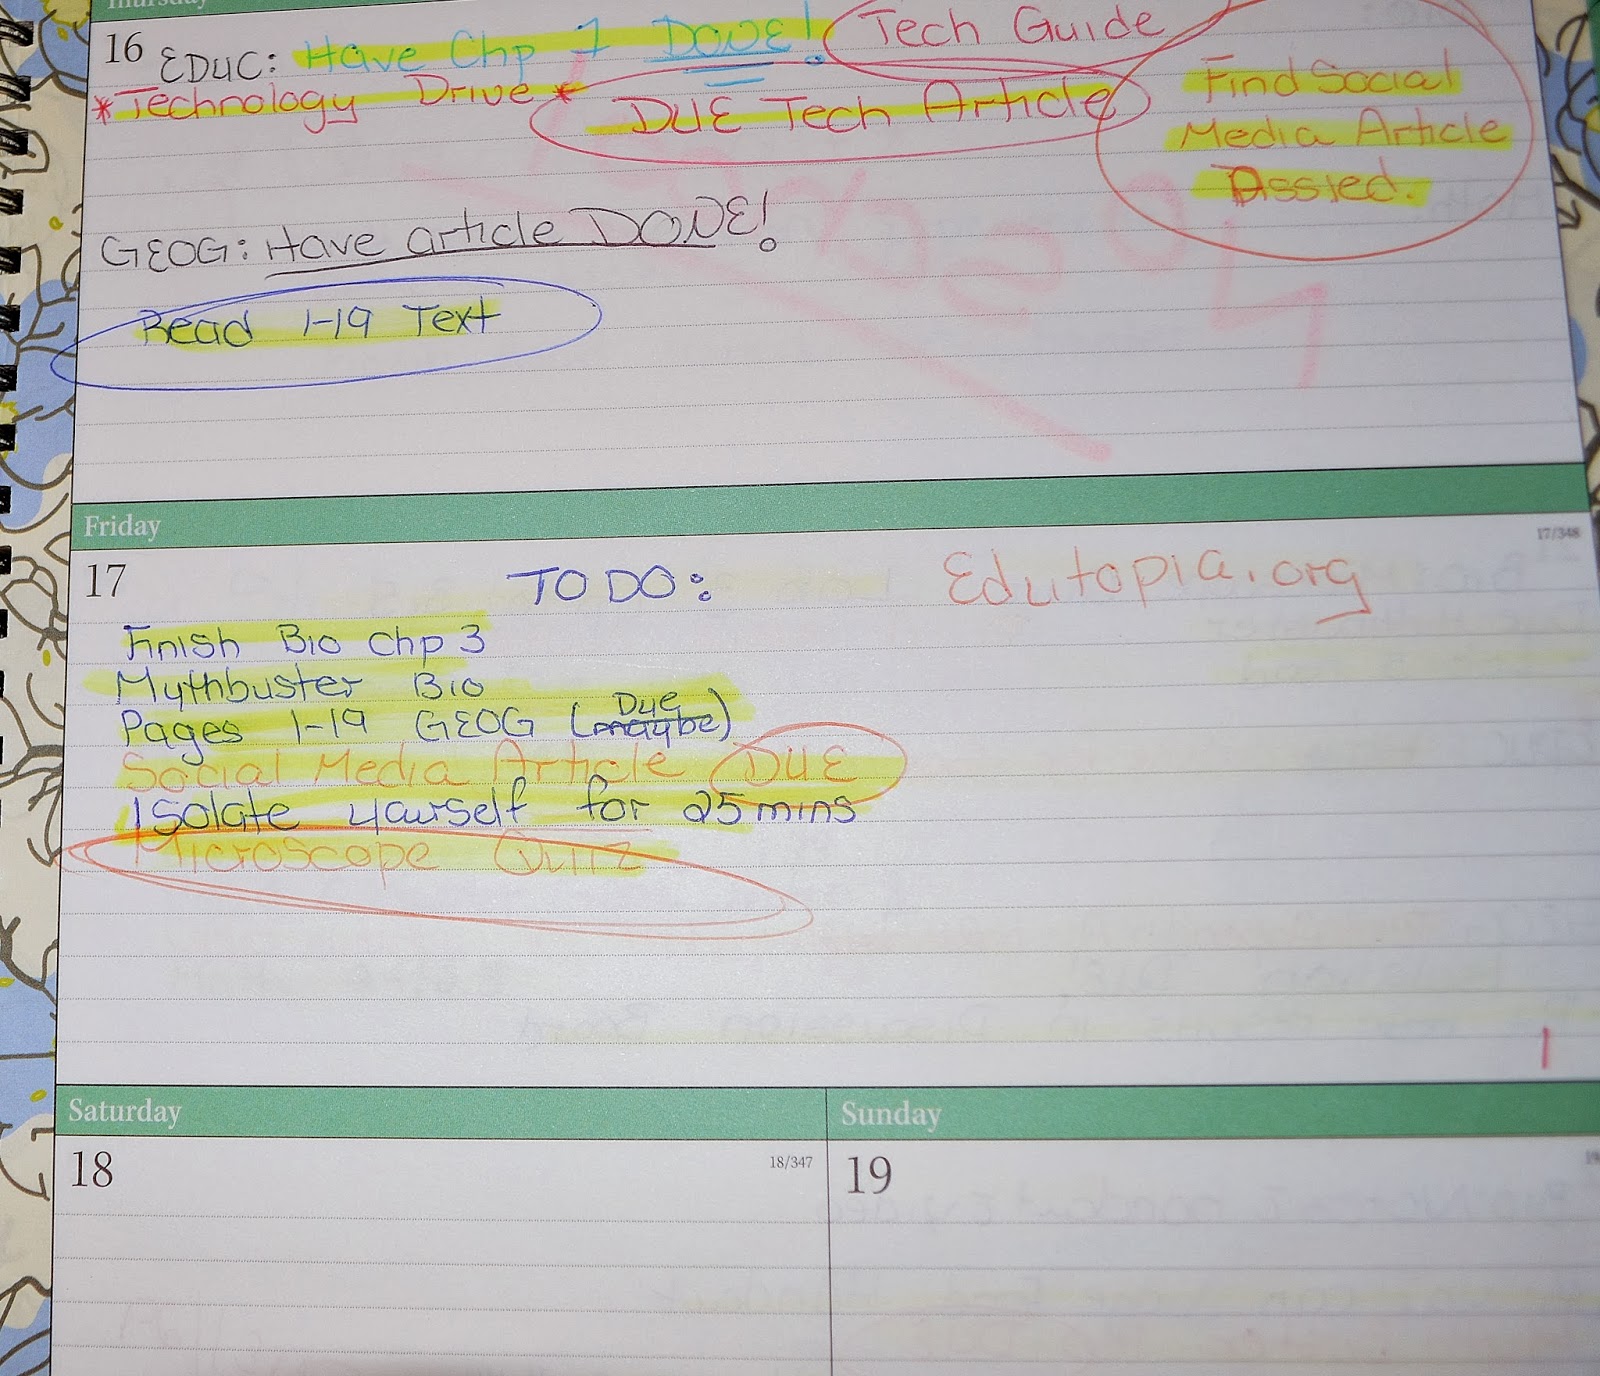 Thursday
16 EDUC: Have Chp 7 DONE! Tech Guide
*Technology Drive* DUE Tech Article
Find Social
Media Article
Assied.
GEOG: Have article DONE!
Read 1-19 Text
Friday
17/348
17 TO DO: Edutopia.org
Finish Bio Chp 3
Mythbuster Bio
Pages 1-19 GEOG (maybe) Due
Social Media Article DUE
Isolate yourself for 25 mins
Microscope Quiz
Saturday
Sunday
18 18/347
19